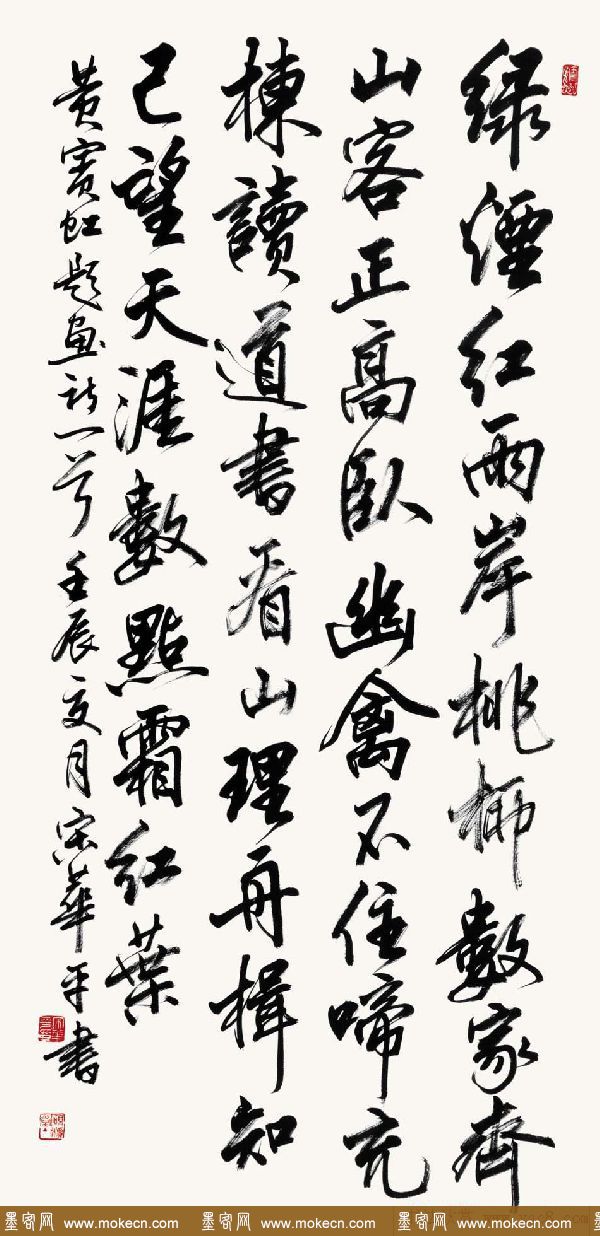 綠煙紅雨岸桃柳數家齊
山客正高臥幽禽不住啼充
棟讀道書看山理舟楫知
己望天涯數點霜紅葉
黄賓虹題畫詩一首 壬辰夏月 宋華平書
墨客网 www.mokecn.com 墨客网 www.mokecn.com 墨客网 www.mokecn.com